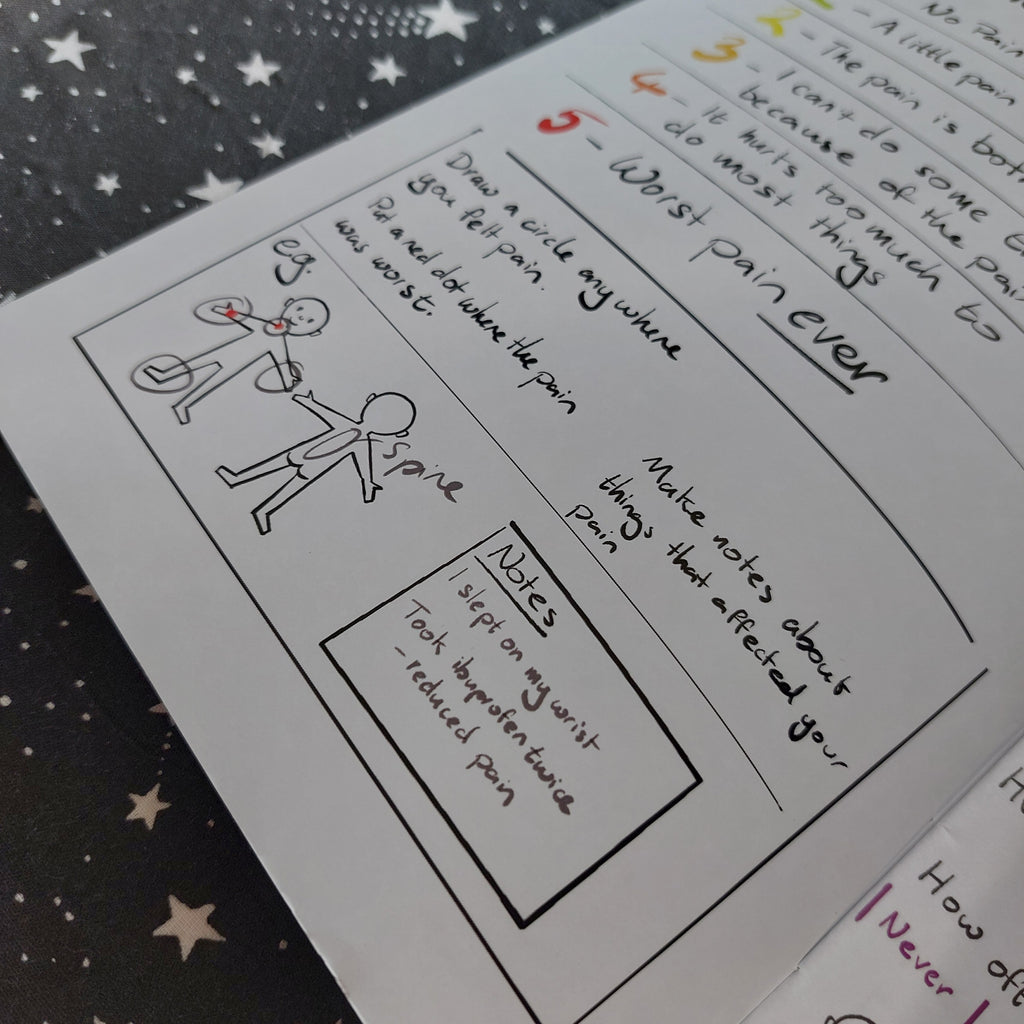 No Pain
- A little pain
2 - The pain is
3 - I can't do some
because of the pain
4 - It hurts too much to
do most things
5 - Worst pain ever
Draw a circle anywhere
you felt pain.
Put a red dot where the pain
was worst.
Make notes about
things that affected your
pain
eg.
spine
Notes
I slept on my wrist
Took ibuprofen twice
- reduced pain
How
Never